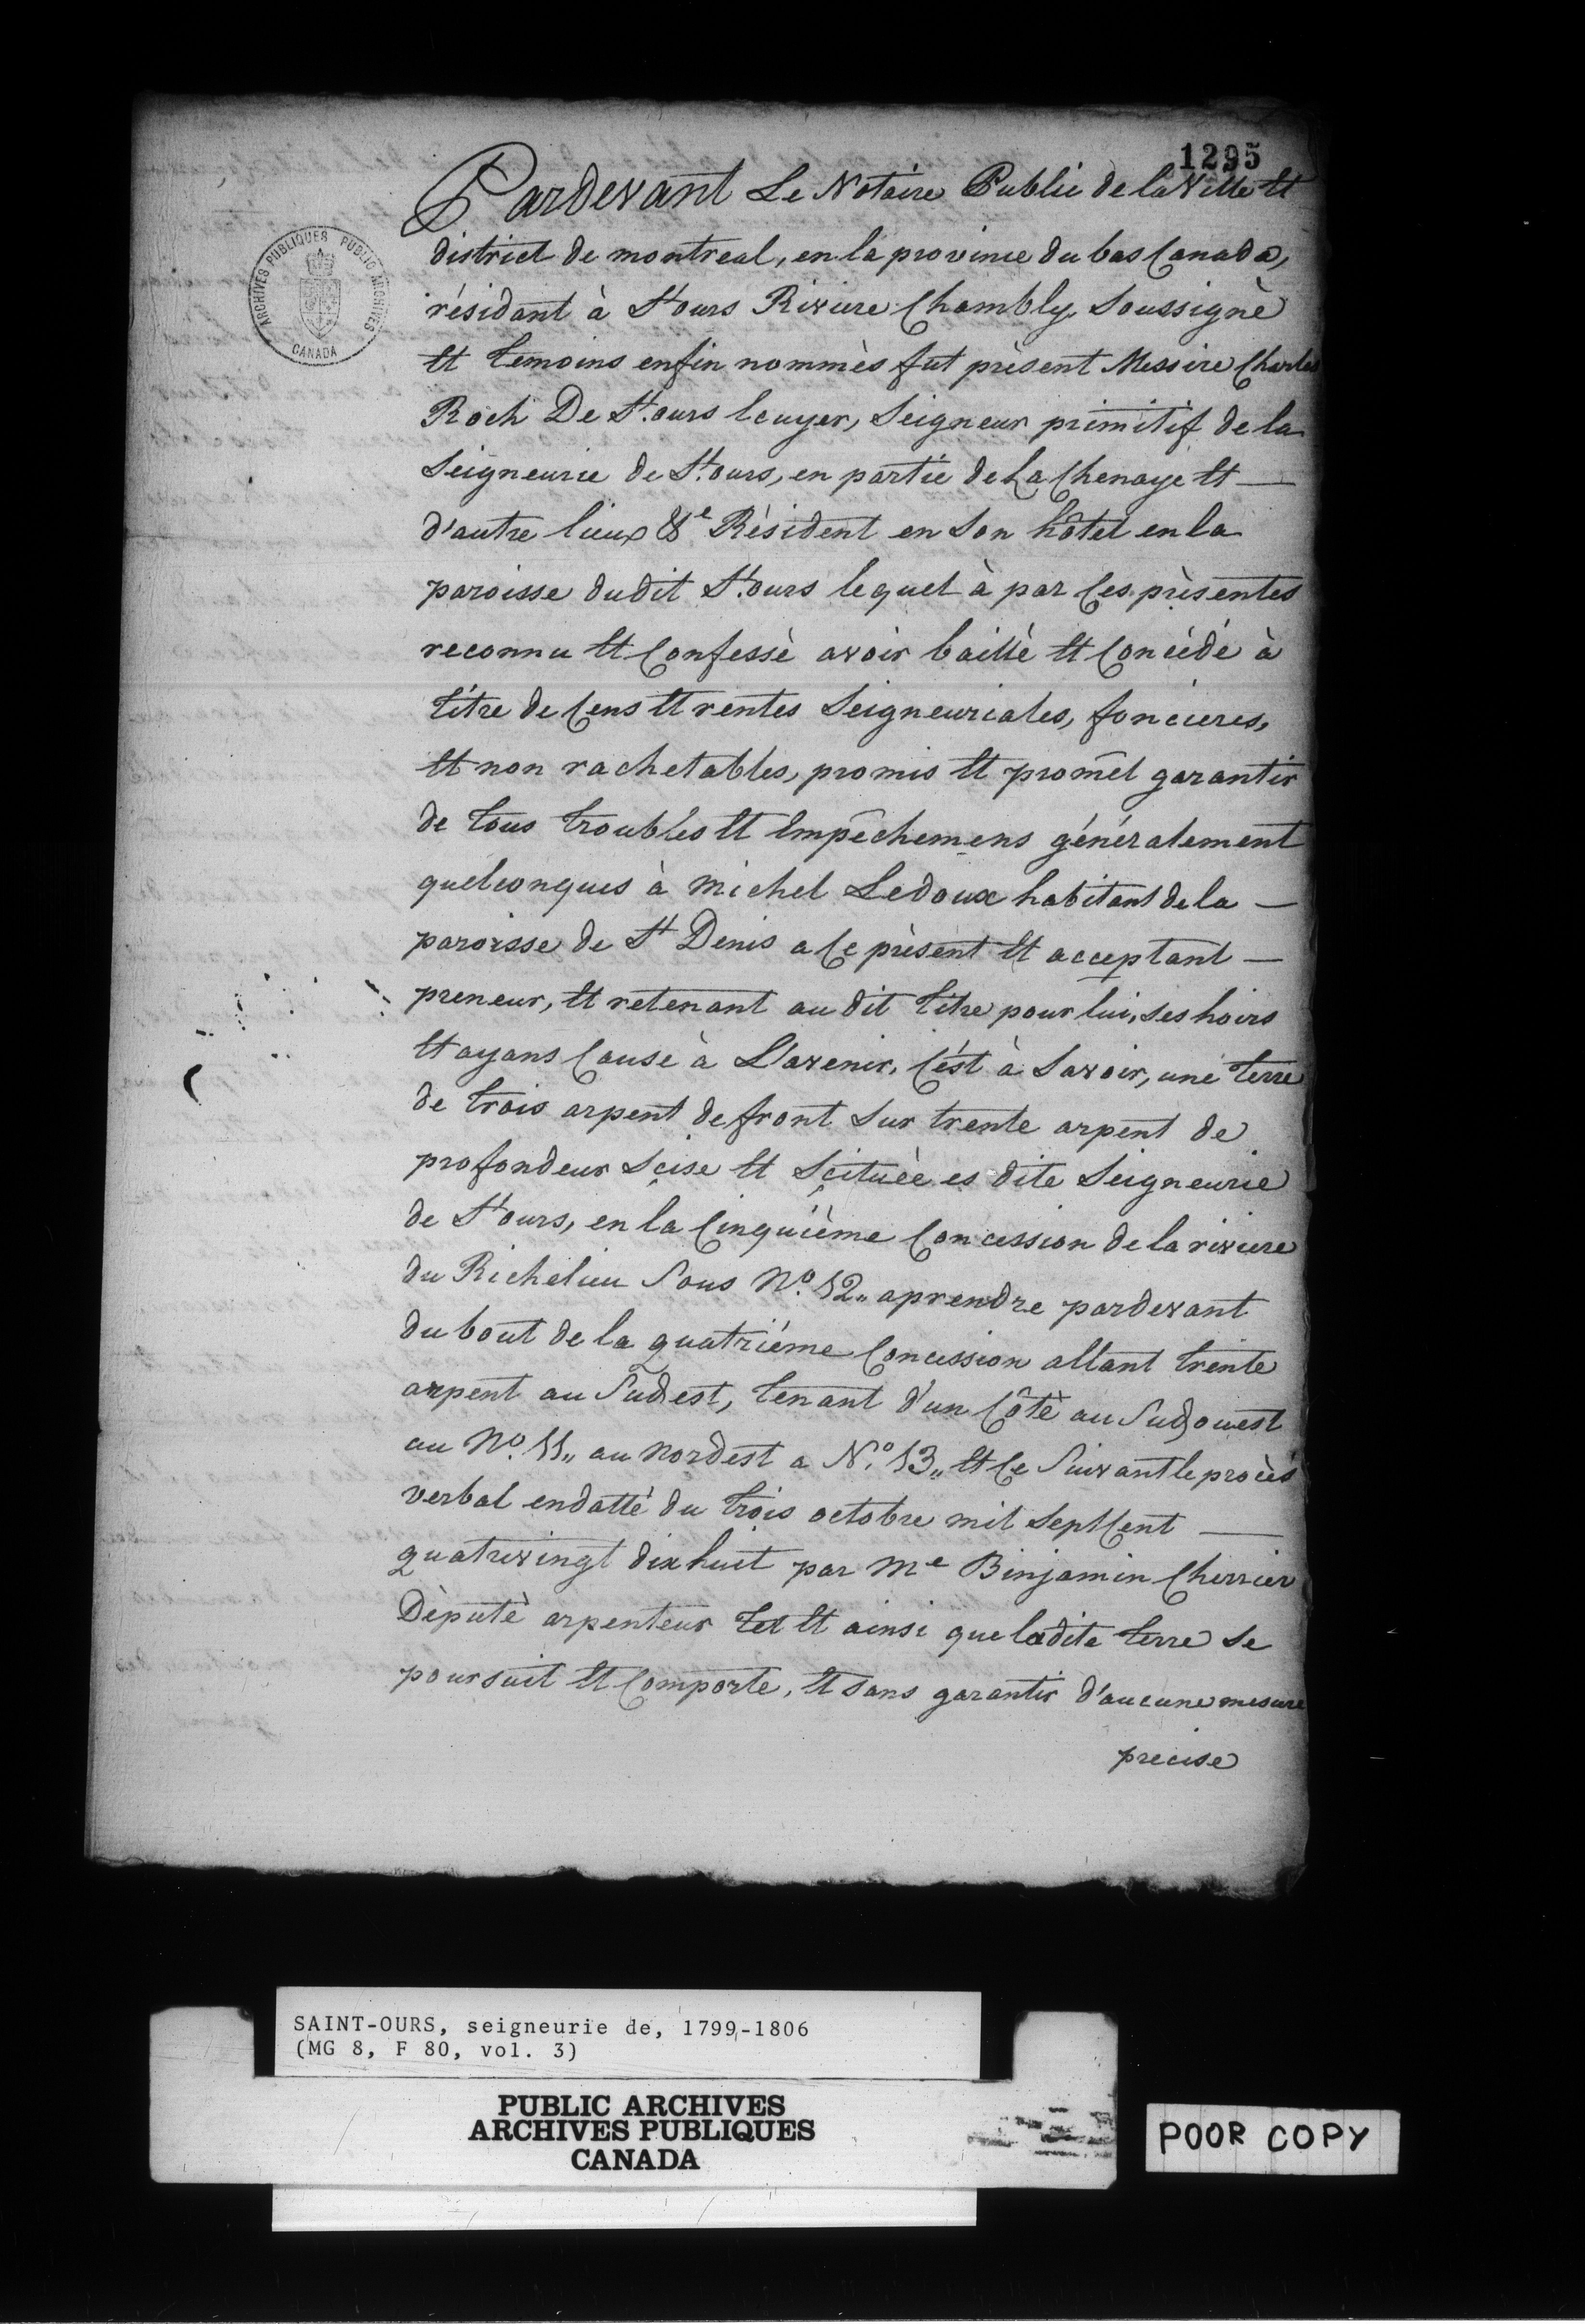 1295
Pardevant Le Notaire Public de la Ville et
district de montreal, en la province du bas Canada,
résidant à St ours Riviere Chambly Soussignè
et temoins enfin nommès fut présent Messire Charles
Roch De St. ours Ecuyer, Seigneur primitif de la
Seigneurie de St. ours, en partie de La Chenaye et —
d'autre lieux &c Résident en Son hôtel en la
paroisse dudit St. ours lequel à par Ces prèsentes
reconnu et Confessè avoir baillè et Concédé à
titre de Cens et rentes Seigneuriales, foncieres,
et non rachetables, promis et promêt garantir
de tous troubles et Empêchemens généralement
quelconques à Michel Ledoux habitant de la —
paroisse de St Denis a Ce prèsent et acceptant —
preneur, et retenant au dit titre pour lui, Ses hoirs
et ayans Cause à L'avenir, C'ést à Savoir, une terre
de trois arpent de front Sur trente arpent de
profondeur Scise et Scituèe es dite Seigneurie
de St ours, en la Cinquième Concession de la riviere
du Richelieu Sous No. 12,, aprendre pardevant
du bout de la quatriéme Concession allant trente
arpent au Sudest, tenant d'un Côtè au Sudouest
au No. 11,, au nordest a No. 13,, et Ce Suivant le procès
verbal endatté du trois octobre mil Sept Cent —
quatrevingt dix huit par Me Binjamin Cherrier
Dèputè arpenteur tel et ainsi que ladite terre Se
poursuit et Comporte, et Sans garantir d'aucune mesure
precise
ARCHIVES PUBLIQUES PUBLIC ARCHIVES
CANADA
SAINT-OURS, seigneurie de, 1799-1806
(MG 8, F 80, vol. 3)
PUBLIC ARCHIVES
ARCHIVES PUBLIQUES
CANADA
POOR COPY